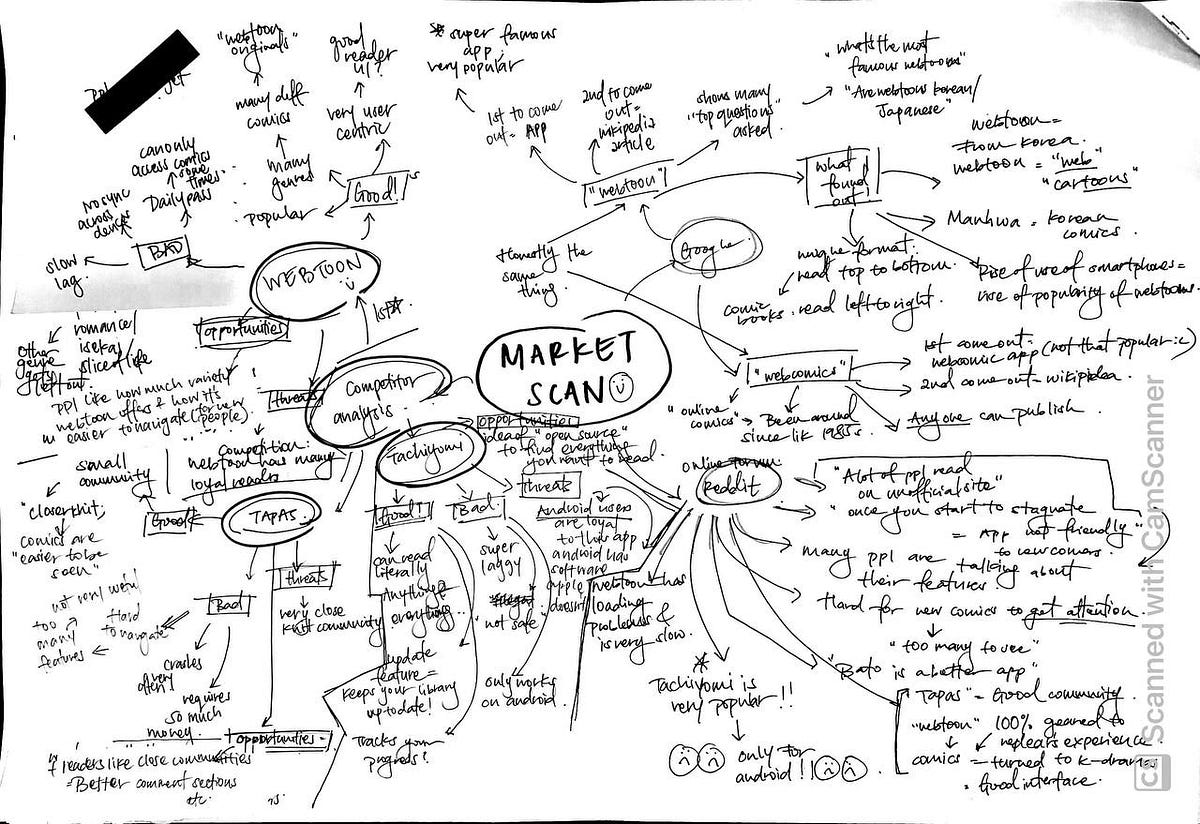 "webtoon
originals"
many diff
comics
many
genres
popular
good
reader
UI?
very user
centric
Good!
can only
access comics
some
times.
Daily pass
No sync
across
devices
slow
lag.
BAD
WEBTOON
opportunities
threats
1st
other
genre
gets
left out.
romance/
isekai
slice of life
ppl like how much variety
webtoon offers & how it's
easier to navigate (for new
people)
competition:
webtoon has many
loyal readers
Competitor
analysis
MARKET
SCAN
super famous
app.
very popular
1st to come
out = APP
2nd to come
out =
wikipedia
article
shows many
"top questions"
asked.
"what's the most
famous webtoons"
"Are webtoons korean/
Japanese"
"webtoon"
what
found
out!
webtoon =
from korea.
webtoon = "web"
"cartoons"
Manhwa = korean
comics.
Rise of use of smartphones =
rise of popularity of webtoons.
unique format.
read top to bottom.
comic
books. read left to right.
Google
Honestly the
same
thing.
"webcomics"
1st come out =
webcomic app (not that popular :c)
2nd come out = wikipidea.
Anyone can publish.
"online
comics"
Been around
since lik 1985s.
Tachiyomi
opportunities
idea of "open source"
to find everything
you want to read.
threats
Android users
are loyal
to this app
android has
software
apple
doesn't
Good!
can read
literally
anything &
everything...
update
feature =
keeps your library
up to date!
Tracks your
progress!
Bad.
super
laggy
not safe
only works
on android.
TAPAS.
Good
small
community
"closer knit,
comics are
"easier to be
seen"
Bad
Hard
to navigate
too
many
features
not very useful
crashes
very
often
requires
so much
money.
threats
very close
knit community
opportunities.
readers like close communities
= Better comment sections
etc.
online forum
Reddit
"A lot of ppl read
on unofficial site"
"once you start to stagnate
= App not friendly"
to newcomers.
many ppl are talking about
their features.
Hard for new comics to get attention.
"too many to see"
"Bato is a better app"
"Tapas" = Good community.
"webtoon" 100% geared to
readers experience.
comics = turned to k-drama
= Good interface.
webtoon has
loading
problems &
is very slow.
Tachiyomi is
very popular!!
only for
android!!
Scanned with CamScanner
CS